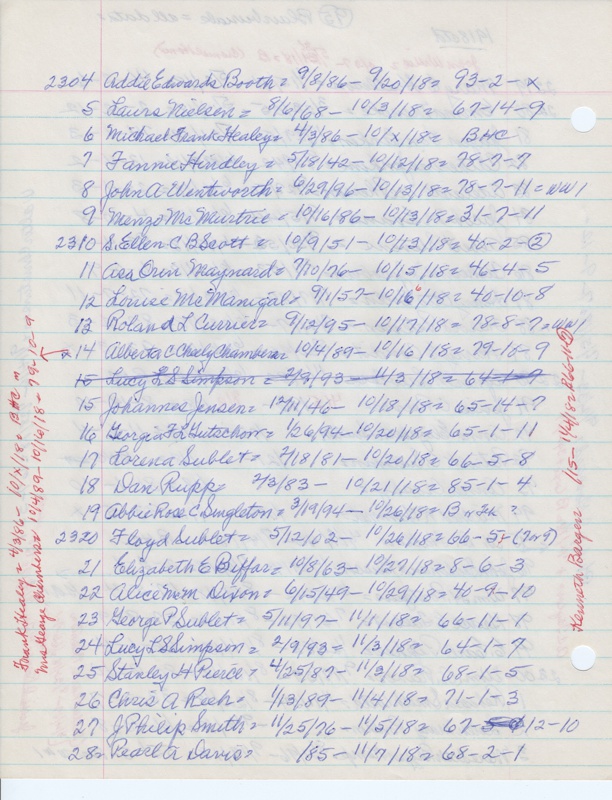 2304 Addie Edwards Booth = 9/8/86 - 9/20/18 = 93-2-x
5 Laurs Nielson = 8/6/68 - 10/3/18 = 67-14-9
6 Michael Frank Healey = 4/3/86 - 10/x/18 = BHC
7 Fannie Hindley = 5/18/42 - 10/12/18 = 78-7-7
8 John A Wentworth = 6/29/96 - 10/13/18 = 78-7-11 = WW1
9 Menzo McMurtrie = 10/16/86 - 10/13/18 = 31-7-11
2310 S. Ellen C B Scott = 10/9/51 - 10/13/18 = 40-2-2
11 Asa Orin Maynard = 7/10/76 - 10/15/18 = 46-4-5
12 Louise McManigal = 9/1/57 - 10/16/18 = 40-10-8
13 Roland L Currier = 9/12/95 - 10/17/18 = 78-8-7 = WW1
x14 Alberta C Charly Chambers = 10/4/89 - 10/16/18 = 79-10-9
15 Lucy L S Simpson = 2/9/93 - 11/3/18 = 64-1-9
15 Johannes Jensen = 12/11/46 - 10/18/18 = 65-14-7
16 Georgia F L Gutschow = 1/26/94 - 10/20/18 = 65-1-11
17 Lorena Sublet = 2/18/81 - 10/20/18 = 66-5-8
18 Dan Rupp = 2/3/83 - 10/21/18 = 85-1-4
19 Abbie Rose C Singleton = 3/19/94 - 10/26/18 =
2320 Floyd Sublet = 5/12/02 - 10/26/18 = 66-5- (7 or 9)
21 Elizabeth E Biffar = 10/8/63 - 10/27/18 = 8-6-3
22 Alice McM Dixon = 6/15/49 - 10/29/18 = 40-9-10
23 George P Sublet = 5/11/97 - 11/1/18 = 66-11-1
24 Lucy L S Simpson = 2/9/93 - 11/3/18 = 64-1-7
25 Stanley H Pierce = 4/25/87 - 11/3/18 = 68-1-5
26 Chris A Rich = 1/13/89 - 11/4/18 = 71-1-3
27 J Philip Smith = 11/25/76 - 11/5/18 = 67-12-10
28 = Pearl A Davis = /85 - 11/7/18 = 68-2-1
Frank Healey = 4/3/86 - 10/x/18 = BHC
Mrs George Chambers = 10/4/89 - 10/16/18 = 79-10-9
Kenneth Bergers 1/15 - 11/4/18 =